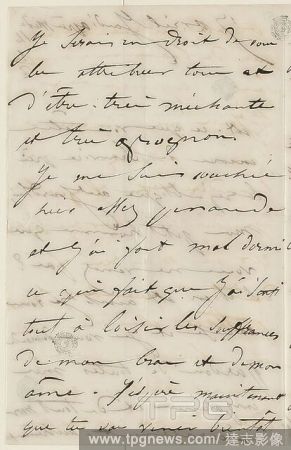 Je serais en droit de vous
les attribuer tous et
d'être très méchante
et très grognon
Je me suis couchée
hier assez
et j'ai fort mal dormi
ce qui fait que j'ai senti
tout à loisir les souffrances
de mon bras et de mon
âme. J'espère maintenant
que tu vas venir bientôt
TPG
www.tpgnews.com / 達志影像